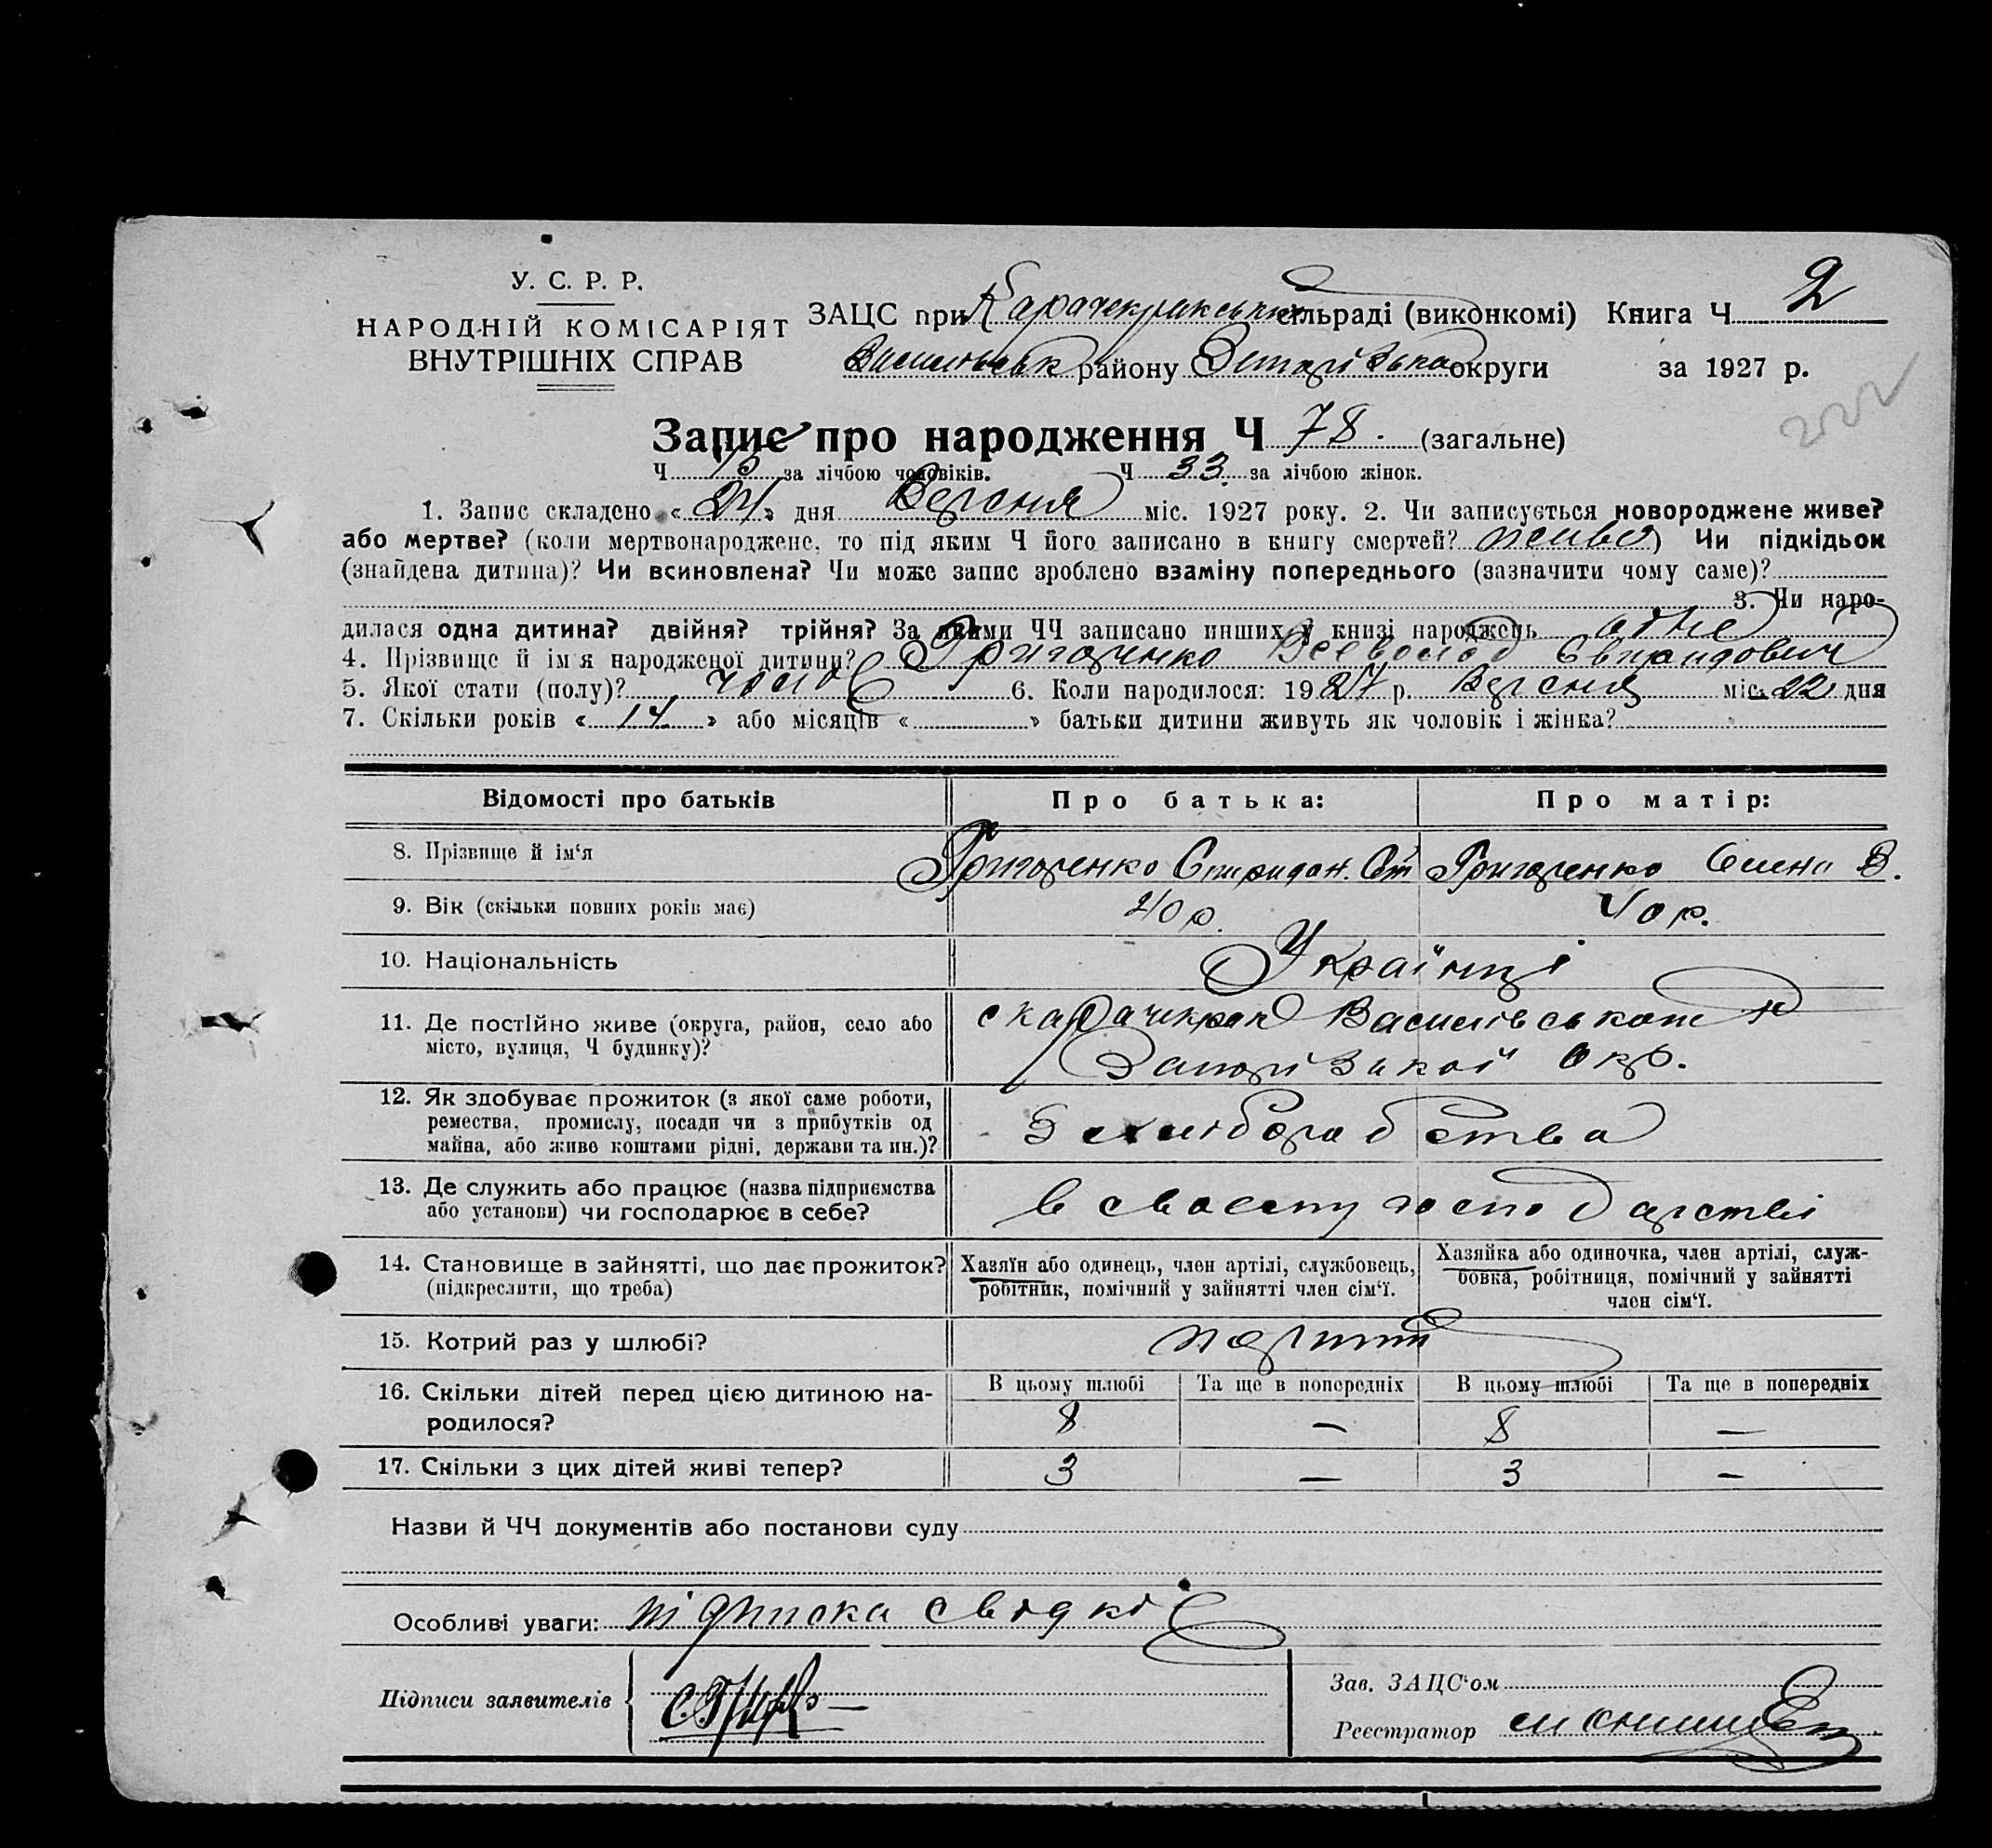 У. С. Р. Р.
НАРОДНІЙ КОМІСАРІЯТ
ВНУТРІШНІХ СПРАВ
ЗАЦС при Карачекракський сільраді (виконкомі) Книга Ч 2
району округи за 1927 р.
222
Запис про народження Ч 78. (загальне)
Ч за лічбою чоловіків. Ч 33. за лічбою жінок.
1. Запис складено «24» дня Вересня міс. 1927 року. 2. Чи записується новороджене живе?
або мертве? (коли мертвонароджене, то під яким Ч його записано в книгу смертей? живо) Чи підкідьок
(знайдена дитина)? Чи всиновлена? Чи може запис зроблено взаміну попереднього (зазначити чому саме)?
3. Чи наро-
дилася одна дитина? двійня? трійня? За якими ЧЧ записано инших у книзі народжень одне
4. Прізвище й ім'я народженої дитини? Григоренко Всеволод
5. Якої стати (полу)? чолов 6. Коли народилося: 1927 р. Вересня міс. 22 дня
7. Скільки років «14» або місяців « » батьки дитини живуть як чоловік і жінка?
Відомості про батьків Про батька: Про матір:
8. Прізвище й ім'я Григоренко Спиридон. Григоренко Елена В.
9. Вік (скільки повних років має) 40 р. 40 р.
10. Національність Українці
11. Де постійно живе (округа, район, село або місто, вулиця, Ч будинку)? с Карачекрак Василівського р
Запорізької Окр.
12. Як здобуває прожиток (з якої саме роботи,
ремества, промислу, посади чи з прибутків од
майна, або живе коштами рідні, держави та ин.)? З хлиборобства
13. Де служить або працює (назва підприємства
або установи) чи господарює в себе? в своему господарстві
14. Становище в зайнятті, що дає прожиток?
(підкреслити, що треба)
Хазяїн або одинець, член артілі, службовець,
робітник, помічний у зайнятті член сім'ї.
Хазяйка або одиночка, член артілі, служ-
бовка, робітниця, помічний у зайнятті
член сім'ї.
15. Котрий раз у шлюбі?
16. Скільки дітей перед цією дитиною на-
родилося?
В цьому шлюбі Та ще в попередніх В цьому шлюбі Та ще в попередніх
8 — 8 —
17. Скільки з цих дітей живі тепер? 3 — 3 —
Назви й ЧЧ документів або постанови суду
Особливі уваги: підписка свідків
Підписи заявителів
Зав. ЗАЦС'ом
Реєстратор